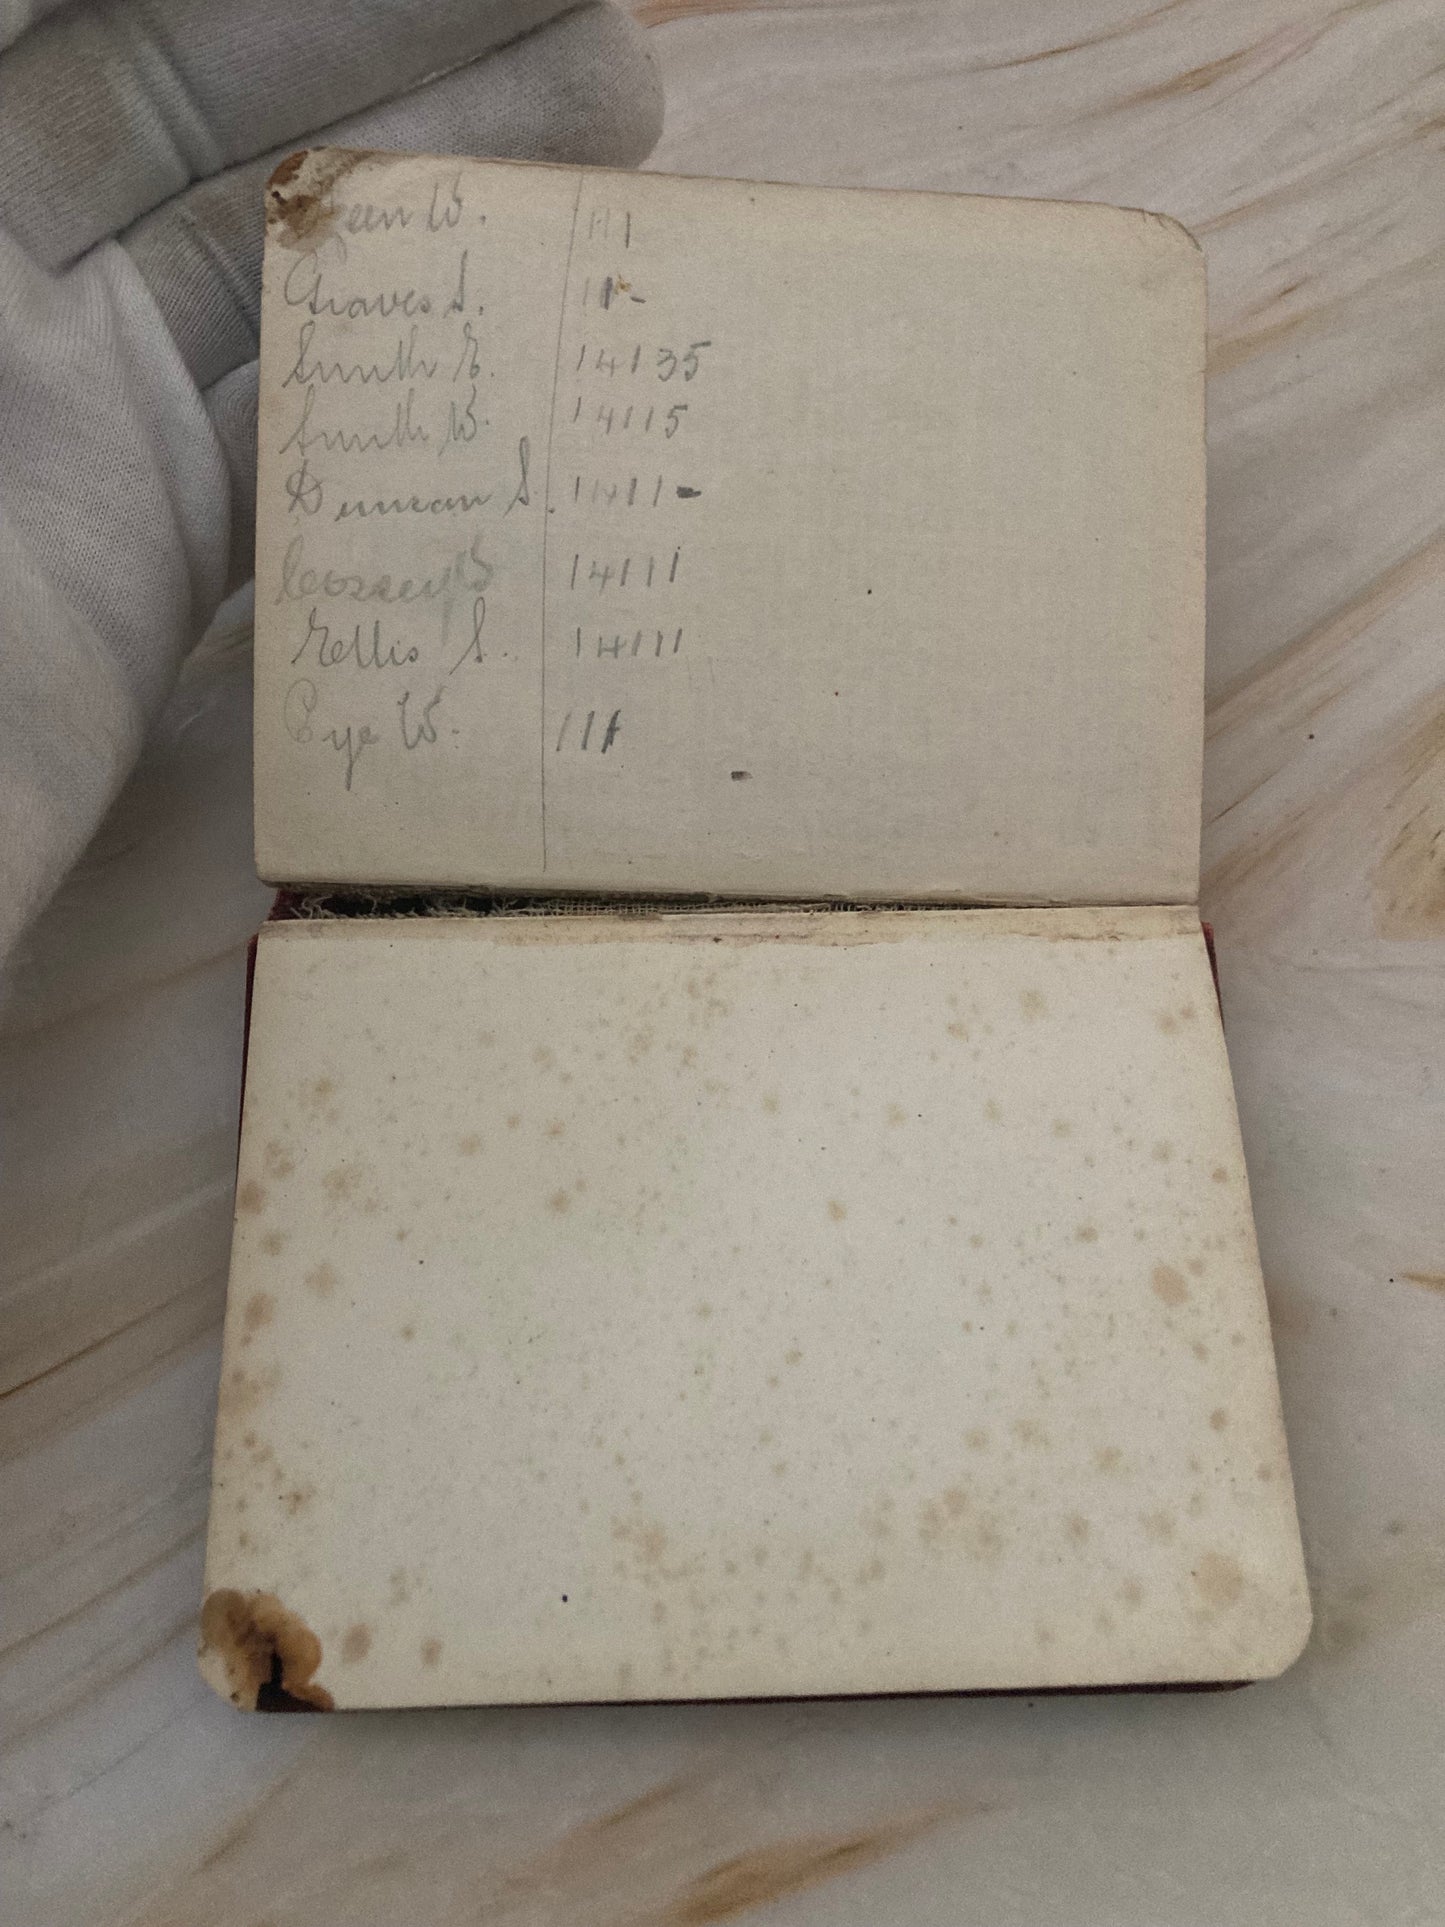 W. 111
Graves S. 11-
Smith E. 14135
Smith W. 14115
Duncan S. 1411-
14111
Ellis S. 14111
Pye W. 111